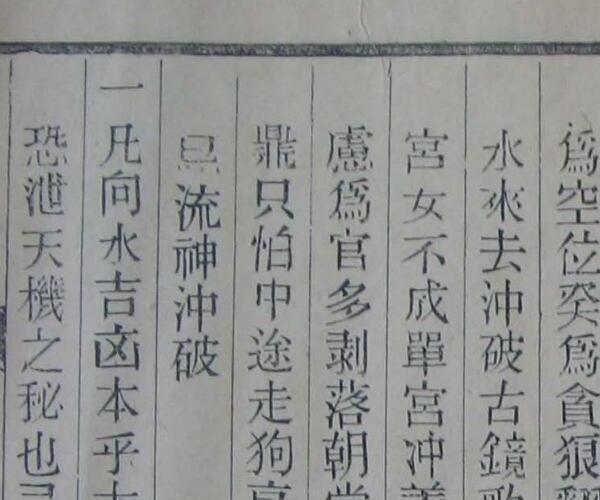 爲空位癸爲貪狼
水來去沖破古鏡歌
宮女不成單宮沖
慮爲官多剥落朝堂
鼎只怕中途走狗烹
流神沖破
一凡向水吉凶本乎
恐泄天機之秘也